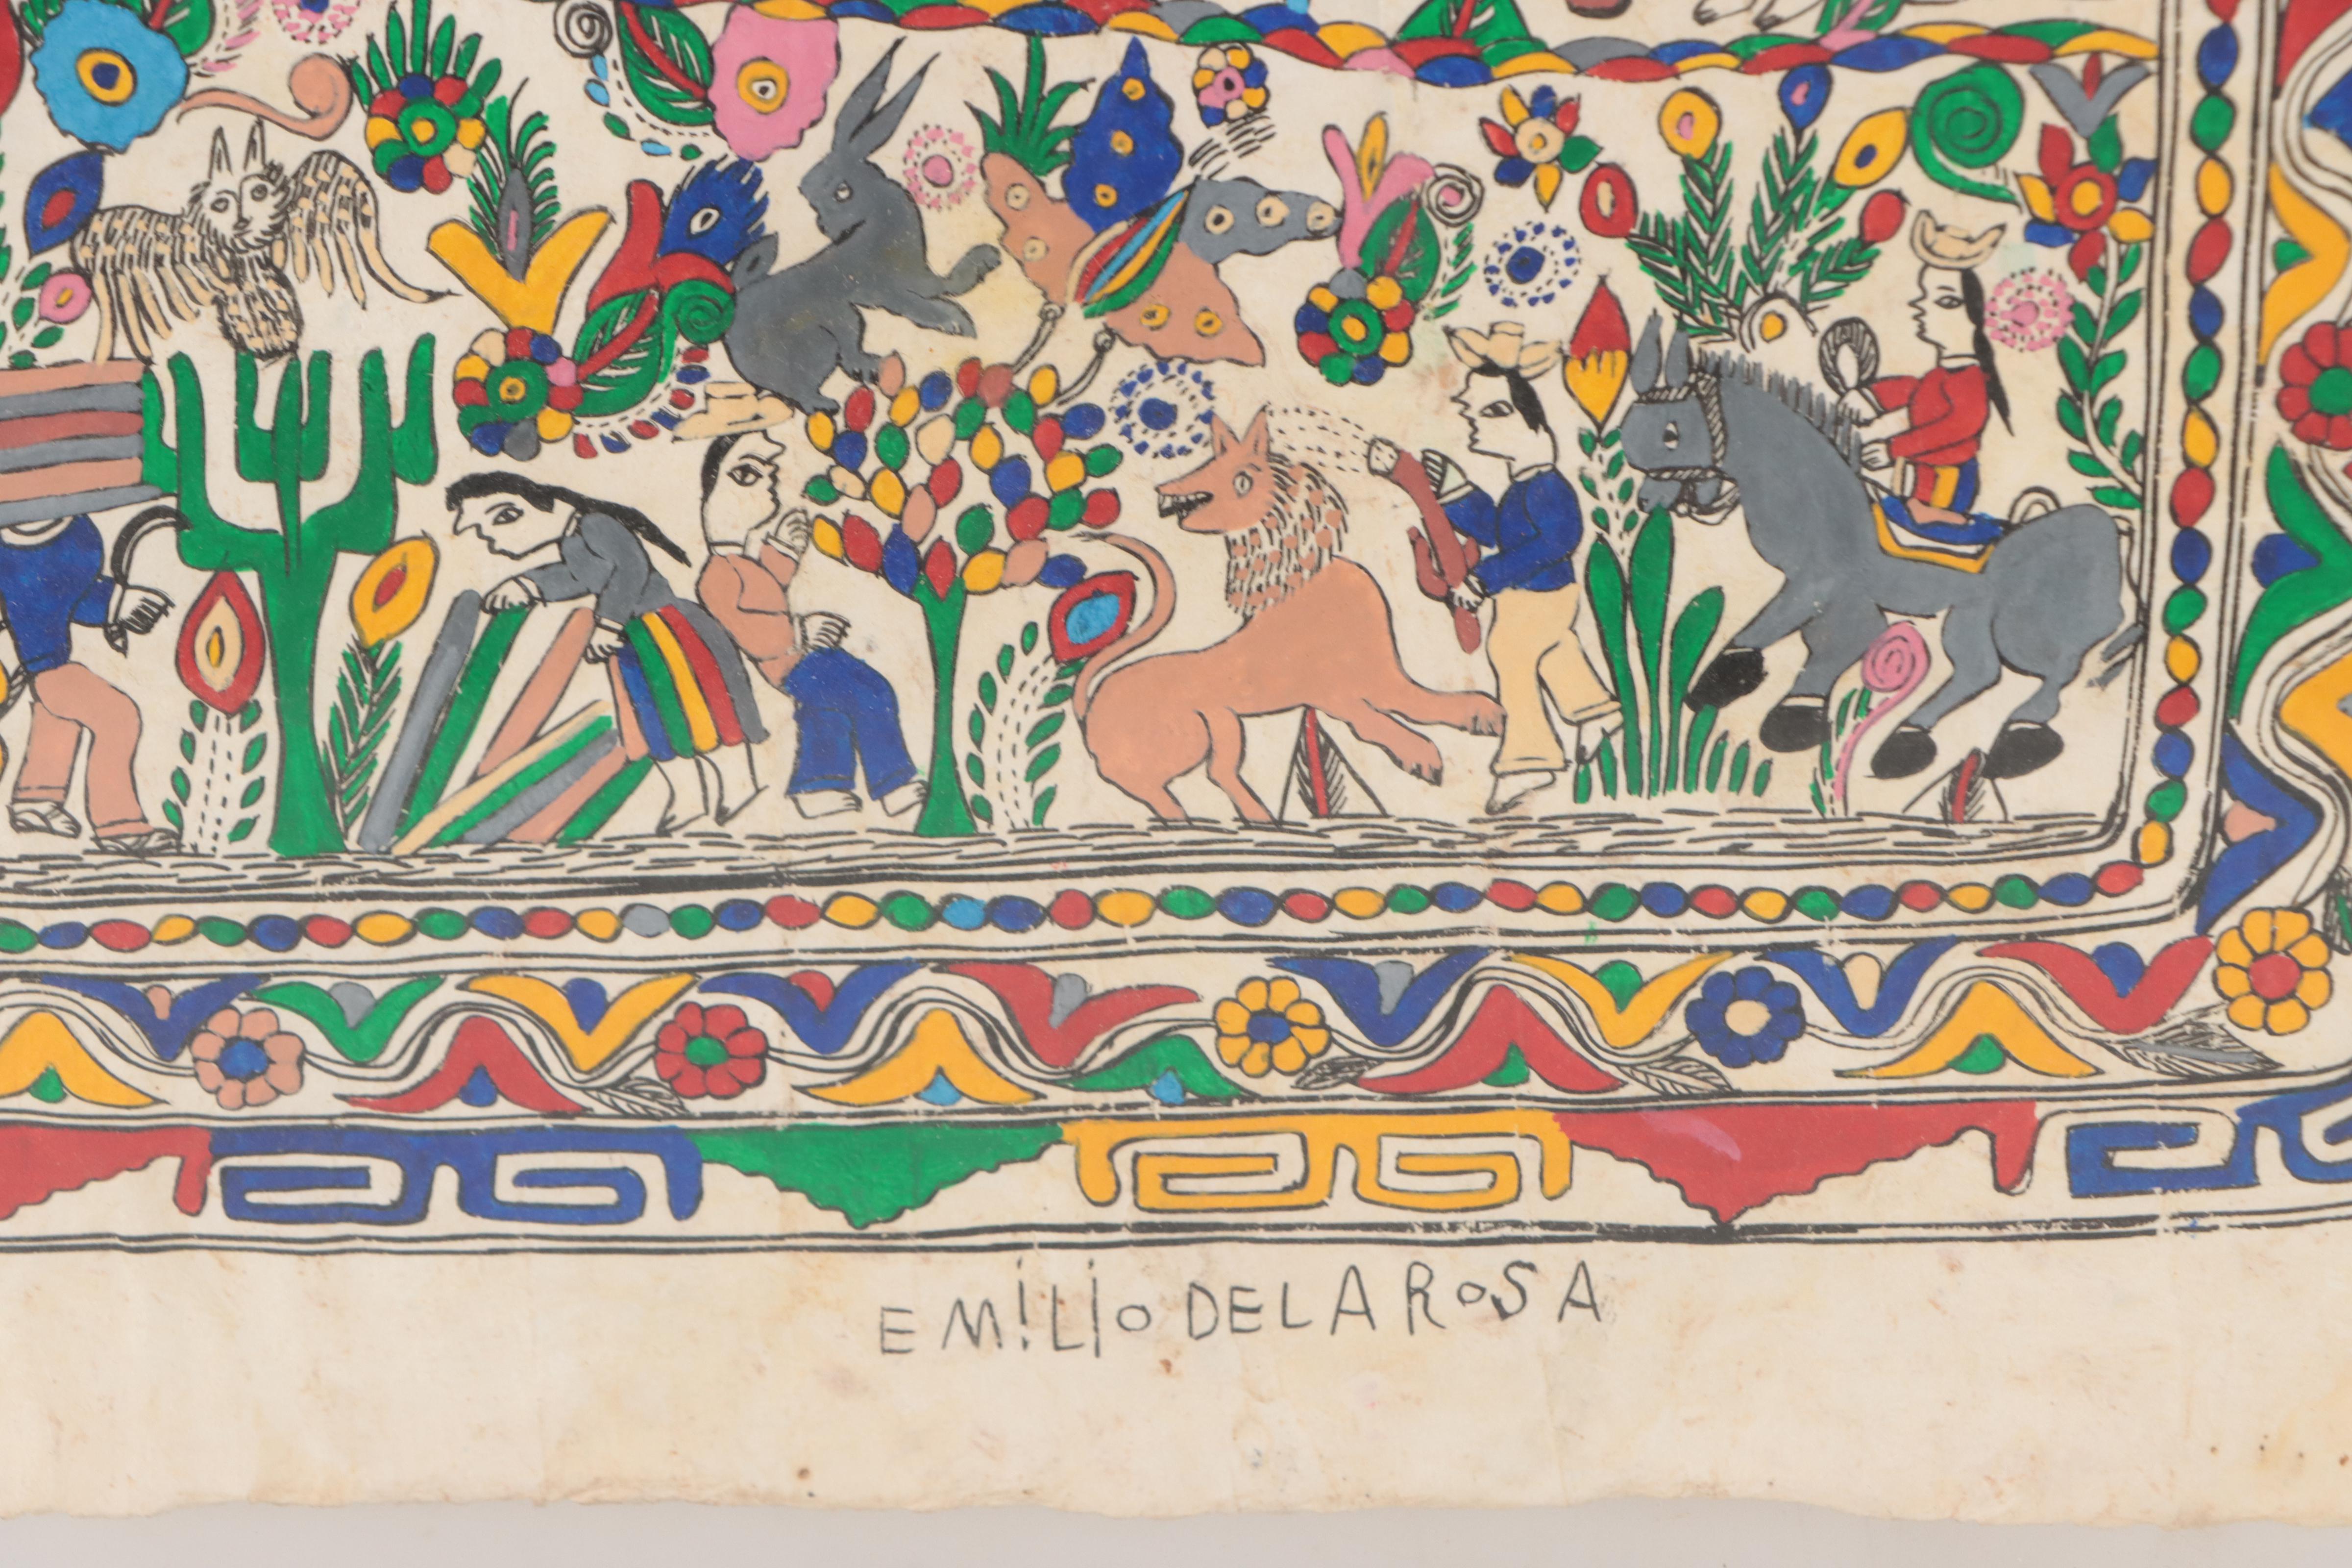 EMiLio DELA RoSA